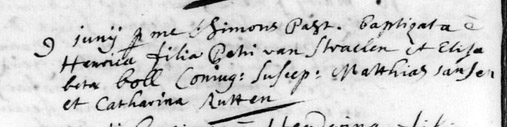 9 junij per me Simons Past. baptizata e
Henrica filia Petri van Straelen et Elisa
beta boll Coniug: Suscep: Matthias Janser
et Catharina Rutten